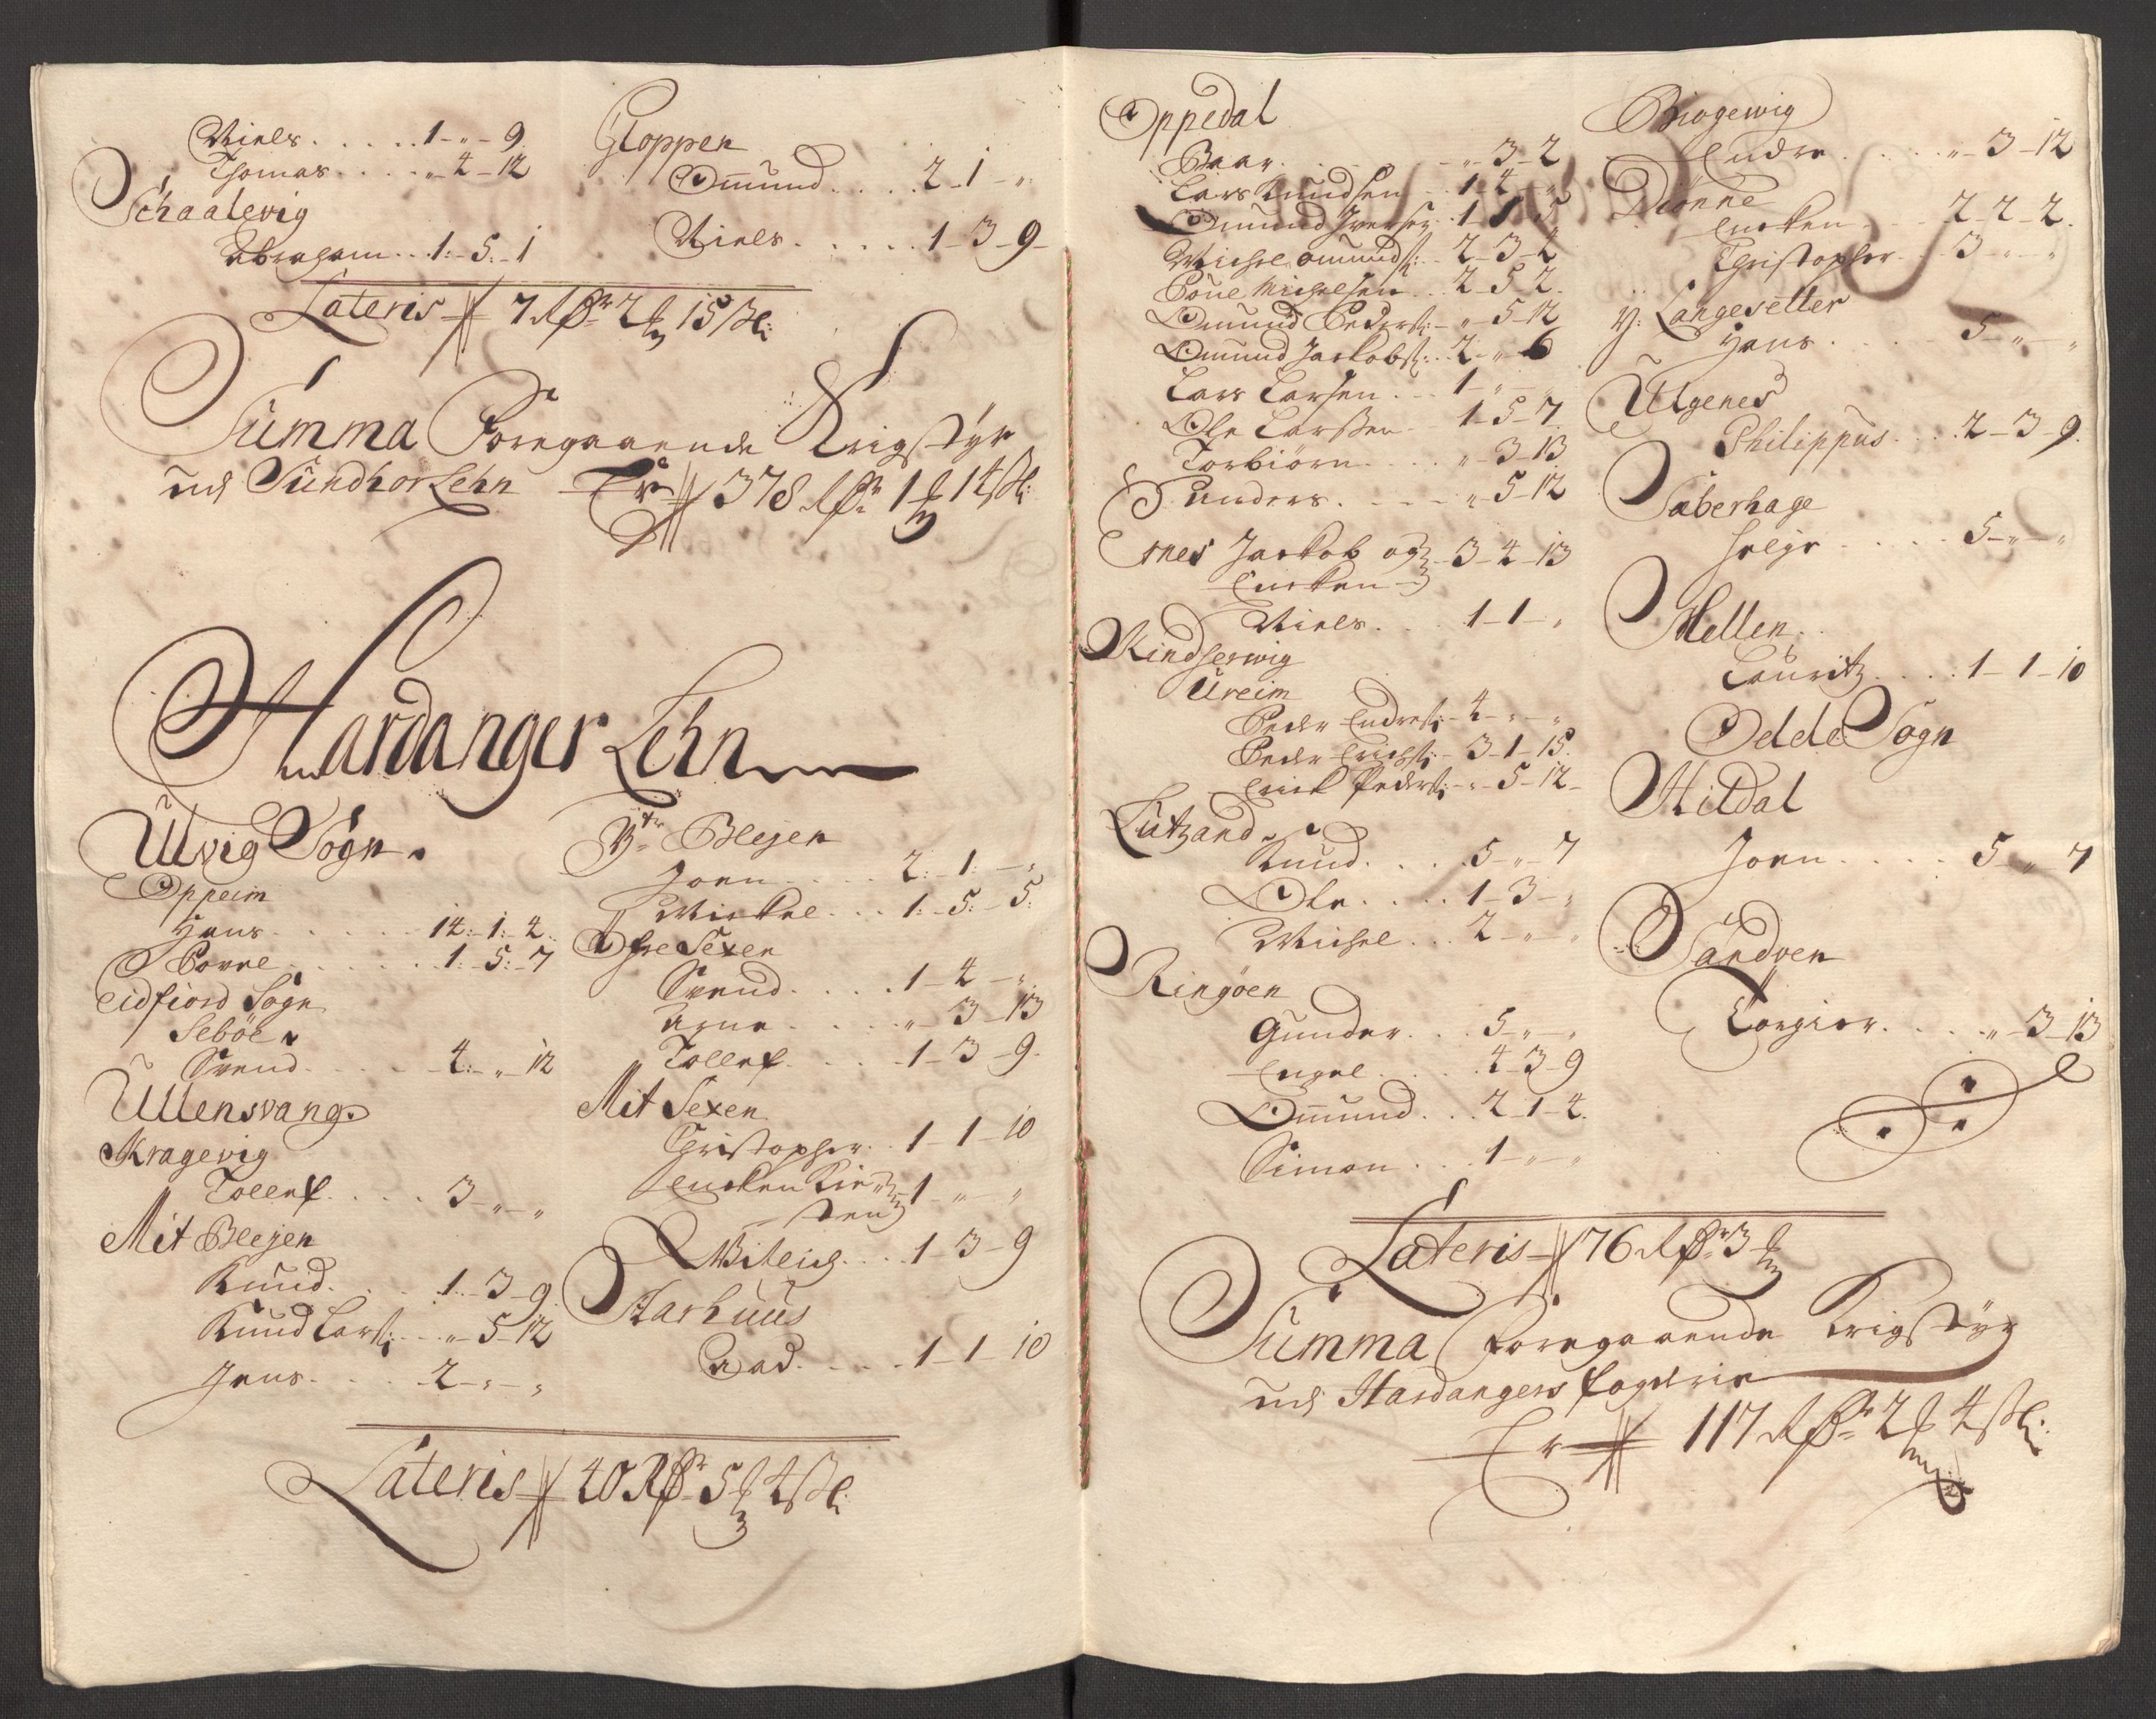 Niels . . . . . 1 - „ - 9
Thomas . . . . „ - 4 - 12
Schaalevig
Abraham . . 1: - 5: - 1
Gloppen
Omund . . . . 2 - 1 - „
Niels . . . . . 1 - 3 - 9 -
Lateris 7 Rdr 2 15 sl:
Summa Foregaaende Krigstÿr
udj Sundhorlehn Er 378 Rdr 1 14 sl:
Hardanger Lehn
Ulvig Sogn.
Oppeim
Hans . . . . . 14: - 1: - 2.
Povne . . . . . 1: - 5: - 7
Eidfiord Sogn
Seböe
Svend . . . . . 4: - „ - 12
Ullensvang
Kragevig
Tollef . . . . 3 - „ - „
Mit Blejen
Knud . . . . 1 - 3 - 9
Knud Lars: . . „ - 5 - 12
Jens . . . . 2 - „ - „
Ytr Blejen
Joen . . . . 2: - 1: - „
Mickel . . . 1: - 5: - 5:
Øfre Sexen
Svend . . . . . 1 - 4 - „
Arne . . . . . „ - 3 - 13
Tollef . . . . 1 - 3 - 9 -
Mit Sexen
Christopher . . 1 - 1 - 10
Encken Kir=
sten 1 - „ - „
Villich . . . 1 - 3 - 9
Aarhuus
Aad . . . . . 1 - 1 - 10
Lateris 40 Rdr 5 4 sl:
Oppedal
Baar . . . . . „ - 3 - 2
Lars Knudsen . . 1 - 4 - „
Omund Iversen . 1 - 1 - 5
Michel omunds: - 2 - 3 - 2
Poue Michelsen . . 2 - 5 - 2.
Omund Peders: - „ - 5 - 12
Omund Jackobs: . . 2 - „ - 6
Lars Larsen . . . 1 - „ - „
Ole Larssen . . 1 - 5 - 7.
Torbiörn . . . . „ - 3 - 13
Anders . . . . . „ - 5 - 12
Ernes Jackob og
Encken 3 - 4 - 13
Niels . . . 1 - 1 - „
Kindserwig
Ureim
Peder Endres: - 4 - „ - „
Peder Erichs: - 3 - 1 - 15.
Erick Peders: - „ - 5 - 12 -
Lutzand
Knud . . . . 5 - „ - 7
Ole . . . . . 1 - 3 - „
Michel . . . 2 - „ - „
Ringöen
Gunder . . . 5 - „ - „
Engel . . . . 4 - 3 - 9
Omund . . . 2 - 1 - 2.
Simon . . . 1 - „ - „
Biogewig
Endre . . . . . „ - 3 - 12
Diönne
Encken . . . . 2 - 2 - 2.
Christopher . . . 3 - „ - „
Y: Langesetter
Hans . . . . . 5 - „ - „
Utgenes
Philippus . . . 2 - 3 - 9.
Saberhage
Helge . . . . . 5 - „ - „
Mellen
Lauritz . . . . . 1 - 1 - 10
Odde Sogn
Hildal
Joen . . . . . 5 - „ - 7
Sandven
Torgier . . . . . „ - 3 - 13
Lateris 76 Rdr 3
Summa foregaaende Krigstÿr
udj Hardangers fogderie
Er 117 Rdr 2 4 sl: